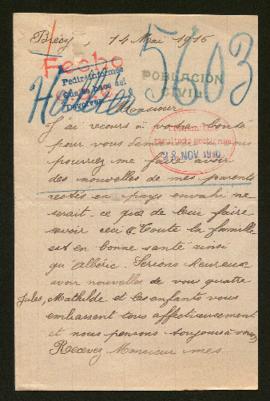 Brécy, 14 Mai 1916
5603
Fecho
Pedir informes
POBLACION
CIVIL
Monsieur
J'ai recours à votre bonté
pour vous demander
pourriez me faire avoir
28 NOV 1916
des nouvelles de mes parents
restés en pays envahi ne
serait ce que de leur faire
savoir ceci Toute la famille
est en bonne santé ainsi
qu'Albéric. Serions heureux
avoir nouvelles de vous quatre
Jules, Mathilde et les enfants vous
embrassent tous affectueusement
et nous pensons toujours à vous
Recevez Monsieur mes